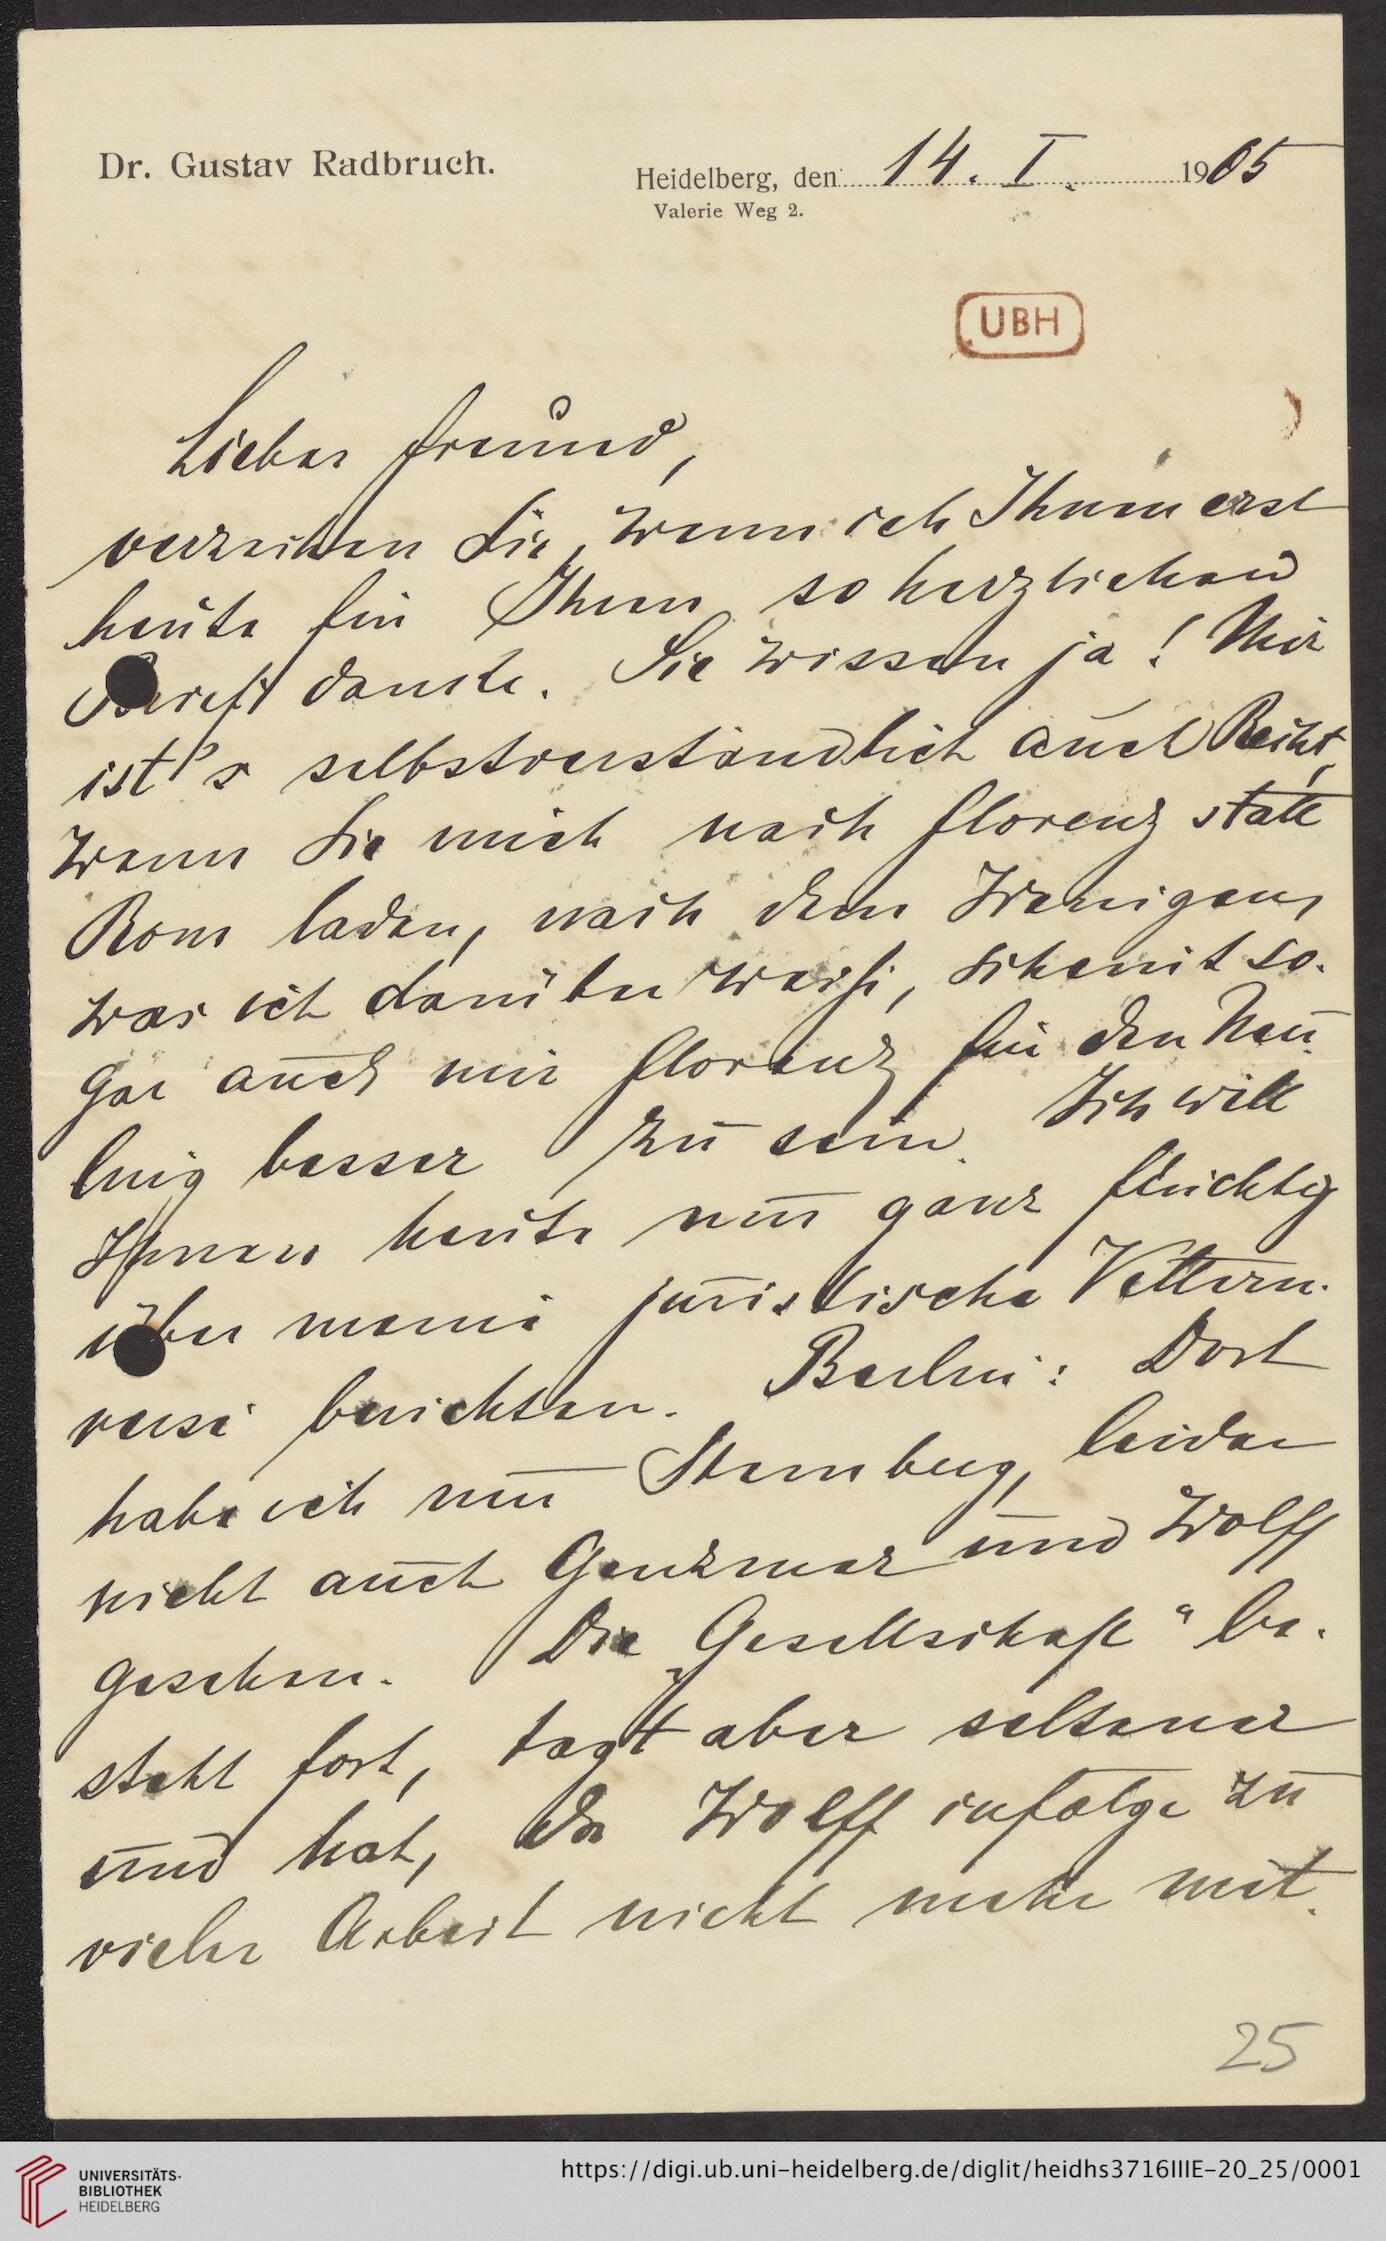 Dr. Gustav Radbruch.
Heidelberg, den 14. I. 1905
Valerie Weg 2.
UBH
Lieber Freund,
verzeihen Sie, wenn ich Ihnen erst
heute für Ihren so herzlichen
Brief danke. Sie wissen ja! Mir
ist's selbstverständlich auch Recht,
wenn Sie mich nach Florenz statt
Rom laden, nach dem Wenigen,
was ich darüber weiß, scheint so-
gar auch mir Florenz für den Neu-
ling besser zu sein. Ich will
Ihnen heute nur ganz flüchtig
über meine juristische Vettern-
reise berichten. Berlin: Dort
habe ich nur Sternberg, leider
nicht auch Genzmer und Wolff
gesehen. Die „Gesellschaft“ be-
steht fort, tagt aber seltener
und hat, da Wolff infolge zu
vieler Arbeit nicht mehr mit-
25
UNIVERSITÄTS-
BIBLIOTHEK
HEIDELBERG
https://digi.ub.uni-heidelberg.de/diglit/heidhs3716IIIE-20_25/0001